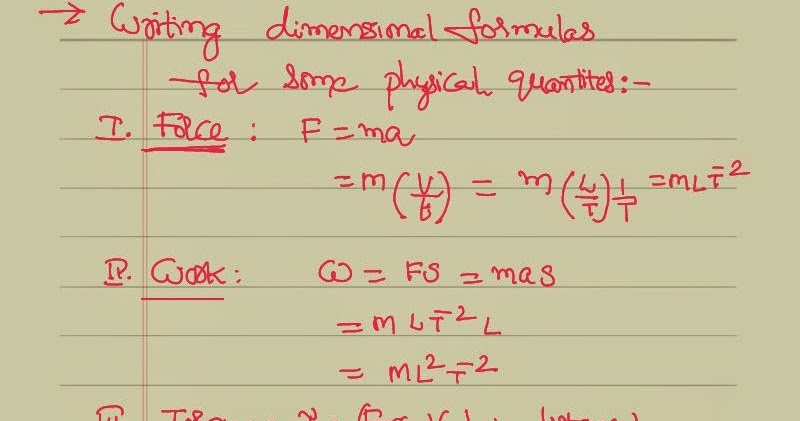 → Writing dimensional formulas
for some physical quantites:-
I. Force : F = ma
= m (V/t) = m (L/T) 1/T = MLT⁻²
II. Work : W = FS = mas
= M LT⁻² L
= ML²T⁻²
III.